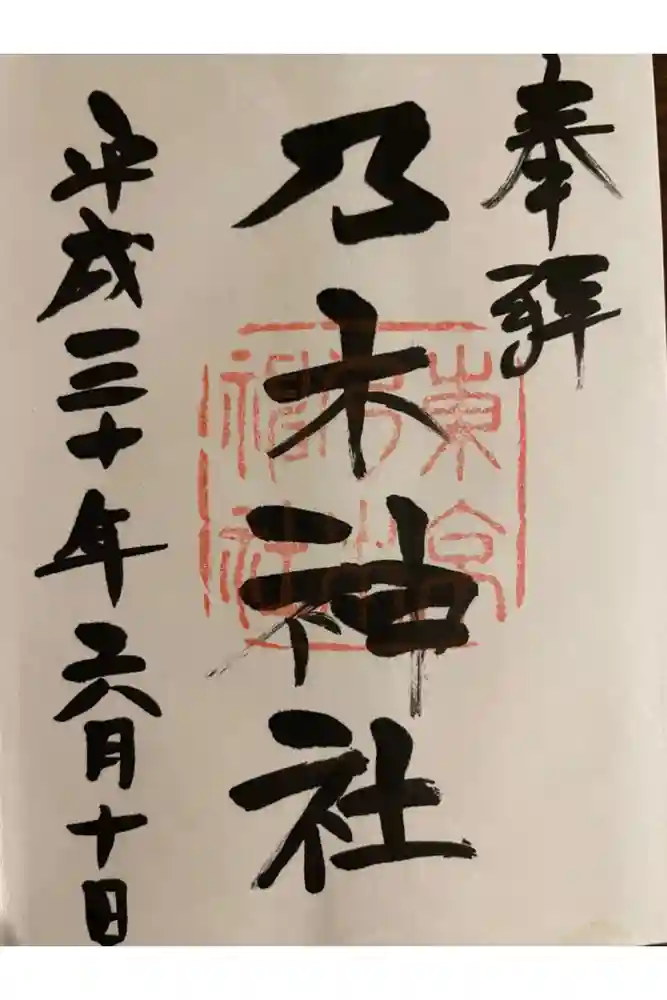 奉拝
乃木神社
東京乃木神社
平成三十年六月十日